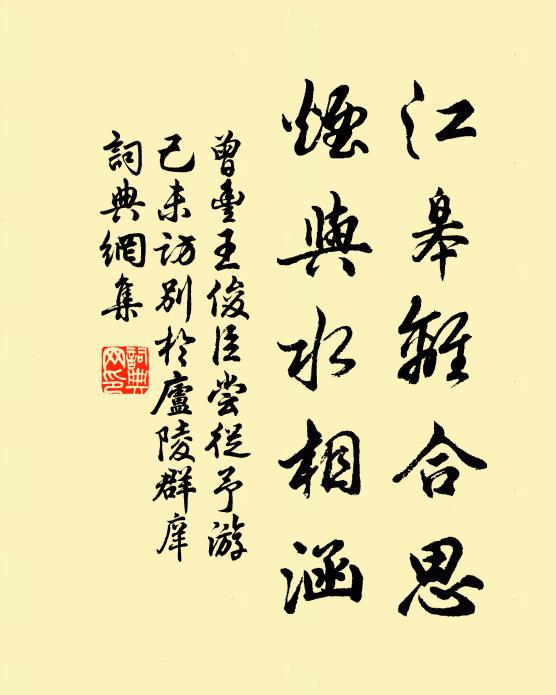 江皋離合思
煙與水相涵
曾豐王俊臣嘗從予游
己未訪別於廬陵群庠
詞典網集
詞典網印